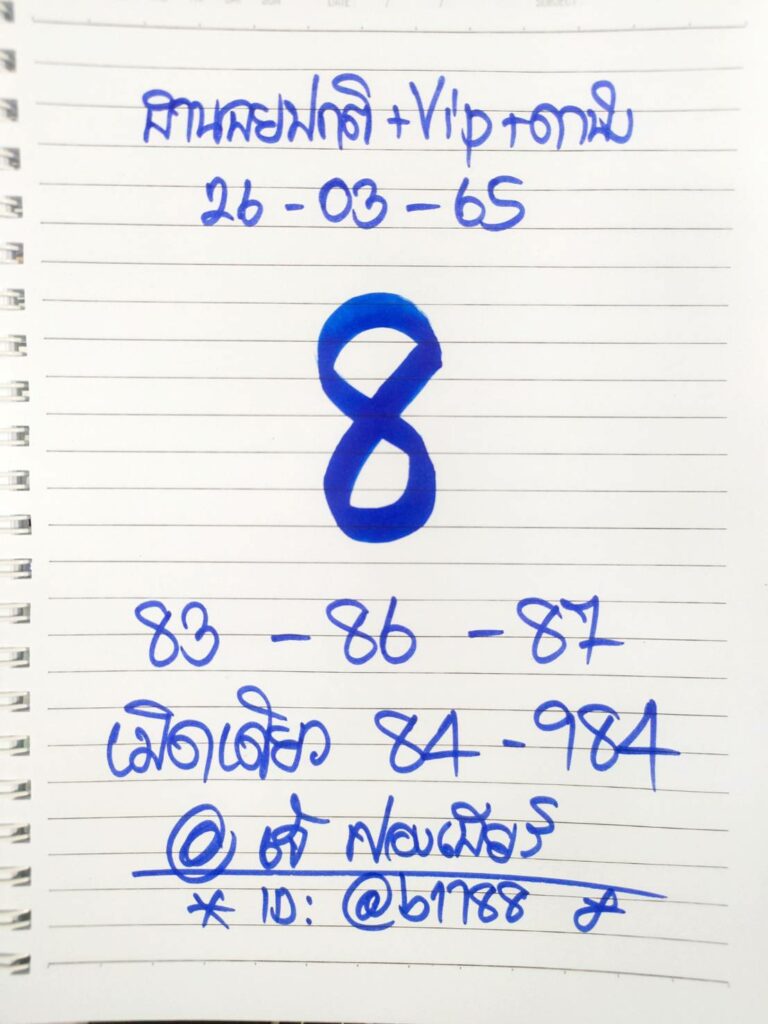 ฮานอยปกติ+Vip+ดานัง
26-03-65
8
83 - 86 - 87
เม็ดเดียว 84-984
@ เจ๊ ฟองเบียร์
* ID: @b1788 *